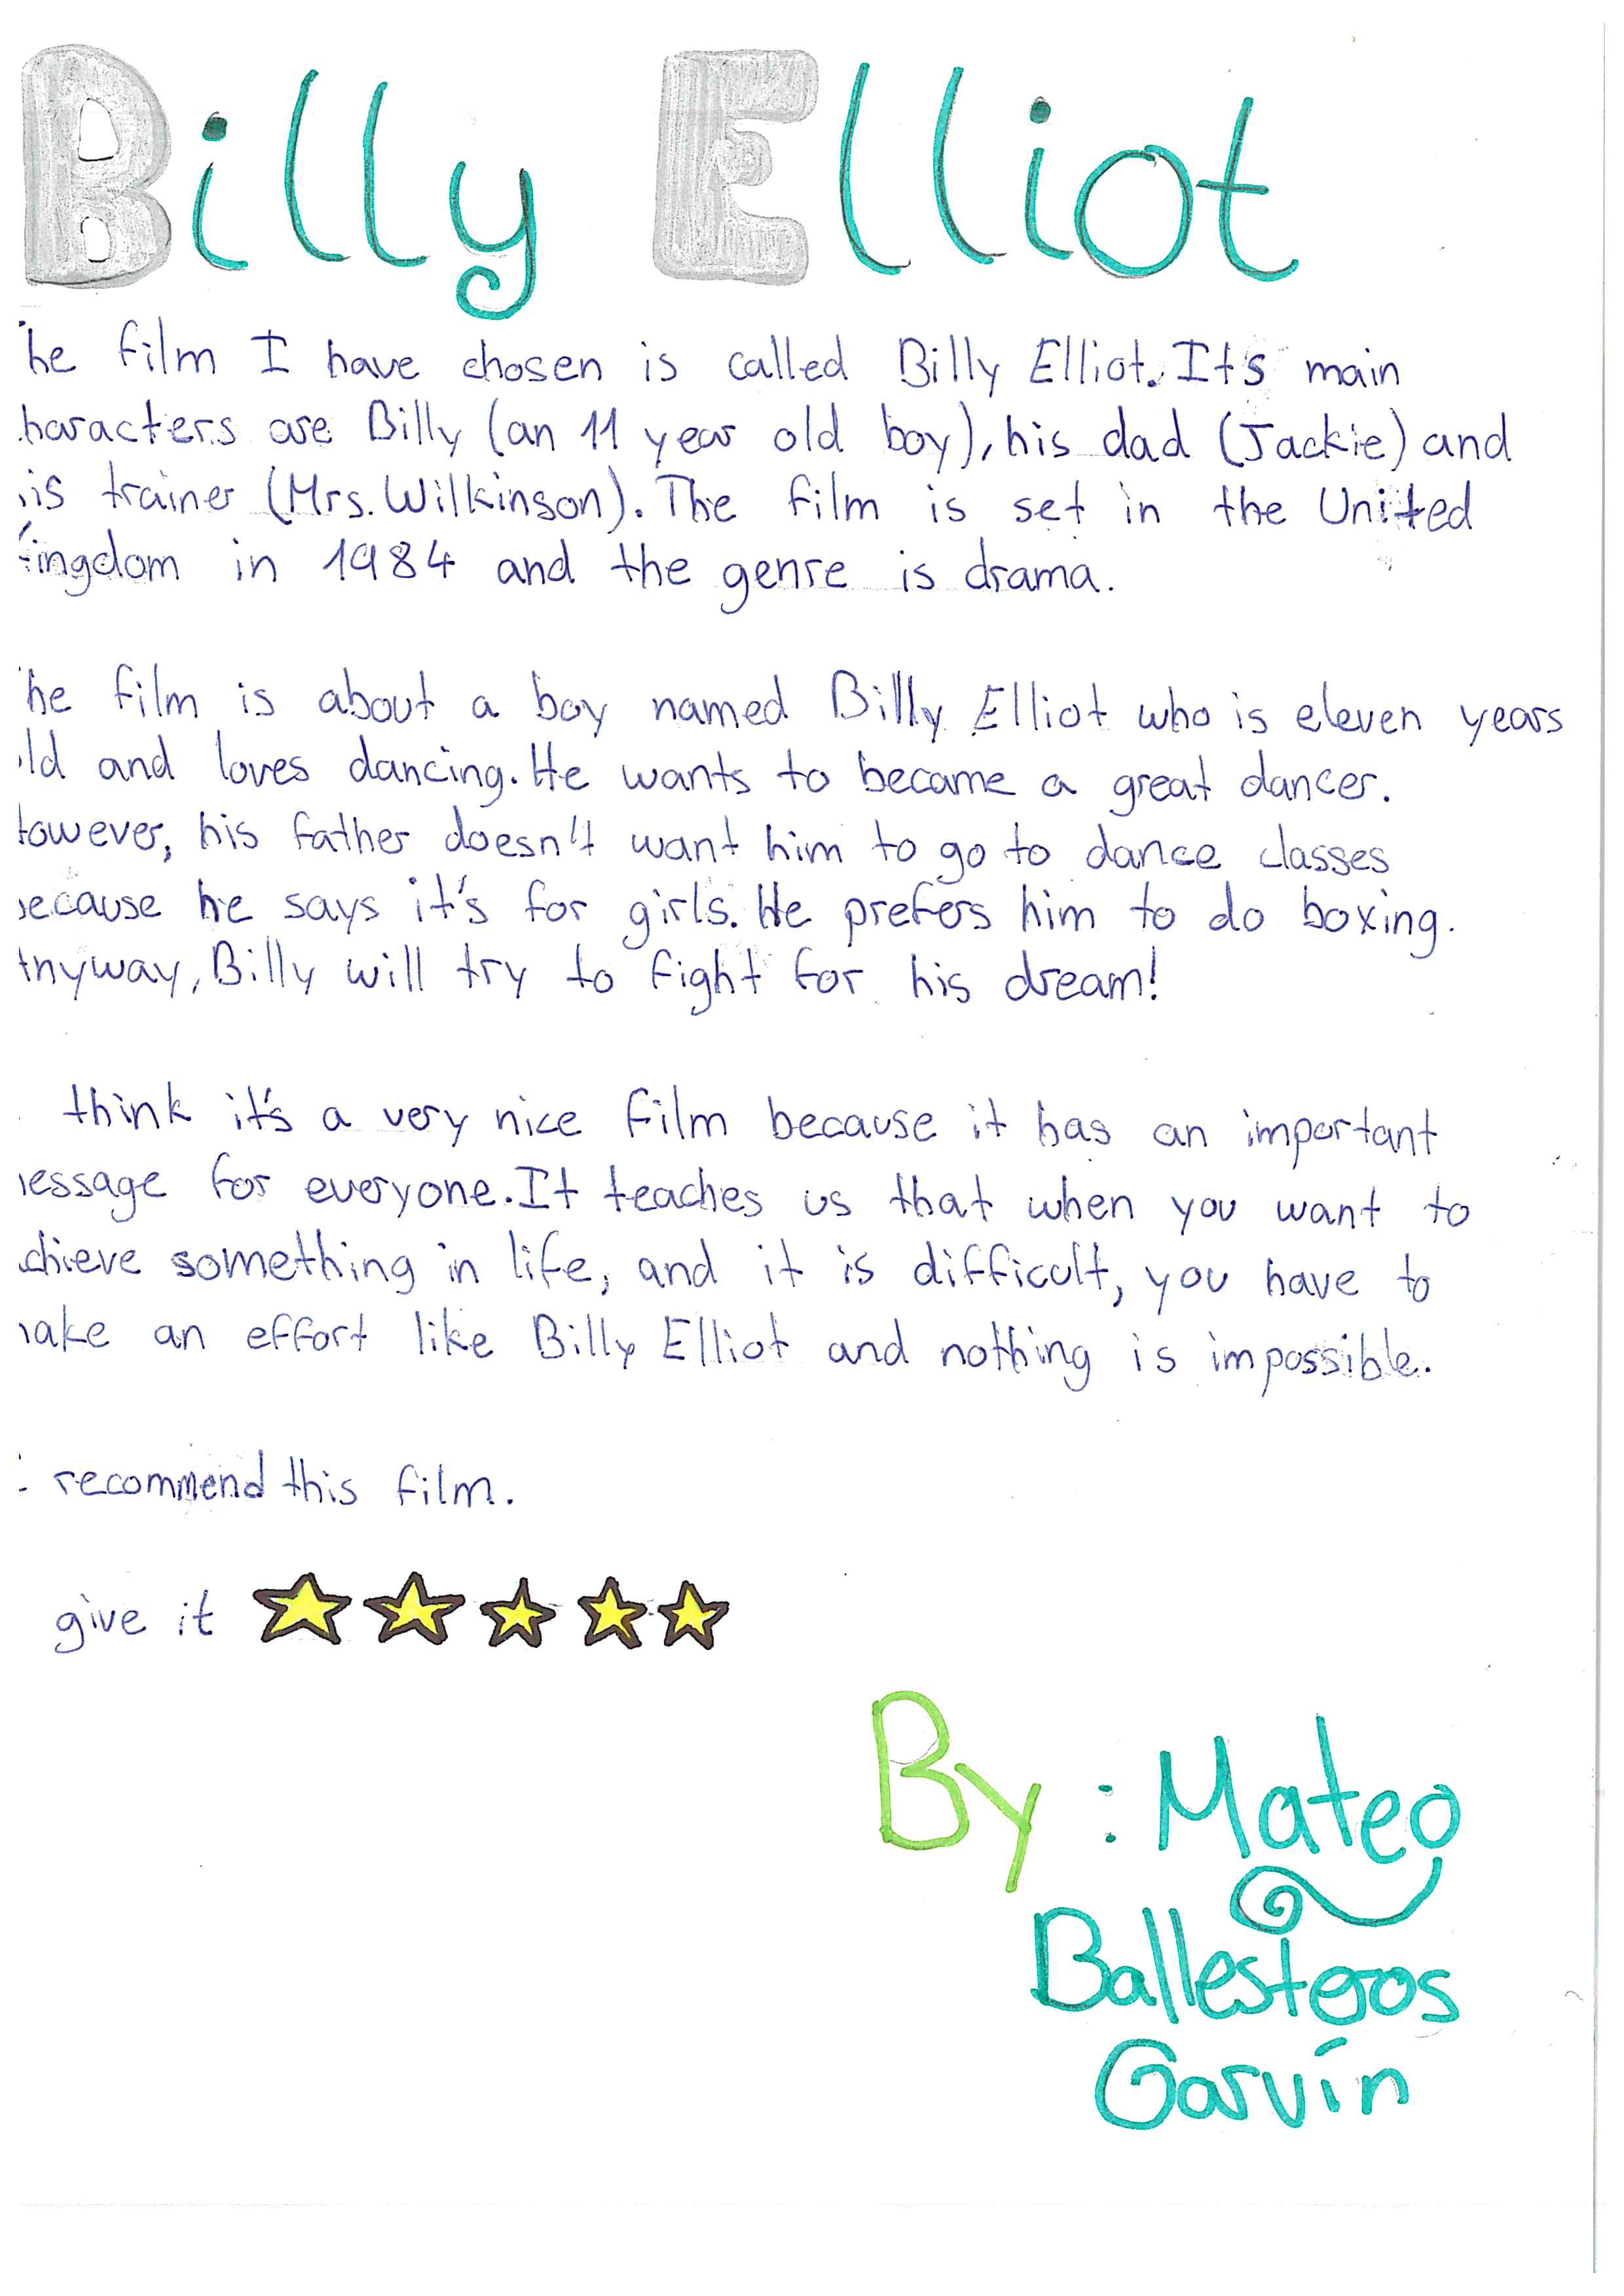 Billy Elliot
he film I have chosen is called Billy Elliot. It's main
haracters are Billy (an 11 year old boy), his dad (Jackie) and
is trainer (Mrs. Wilkinson). The film is set in the United
ingdom in 1984 and the genre is drama.
he film is about a boy named Billy Elliot who is eleven years
ld and loves dancing. He wants to became a great dancer.
owever, his father doesn't want him to go to dance classes
ecause he says it's for girls. He prefers him to do boxing.
nyway, Billy will try to fight for his dream!
think it's a very nice film because it has an important
essage for everyone. It teaches us that when you want to
chieve something in life, and it is difficult, you have to
ake an effort like Billy Elliot and nothing is impossible.
recommend this film.
give it
By: Mateo
Ballesteros
Garvín